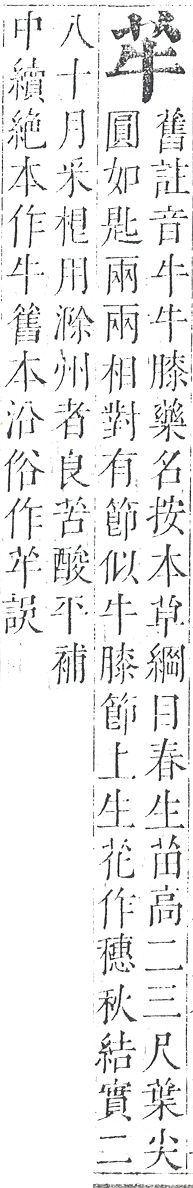 芈 舊註音牛牛膝藥名按本草綱目春生苗高二三尺葉尖
圓如匙兩兩相對有節似牛膝節上生花作穗秋結實二
八十月采根用滁州者良苦酸平補
中續絶本作牛舊本沿俗作芈誤